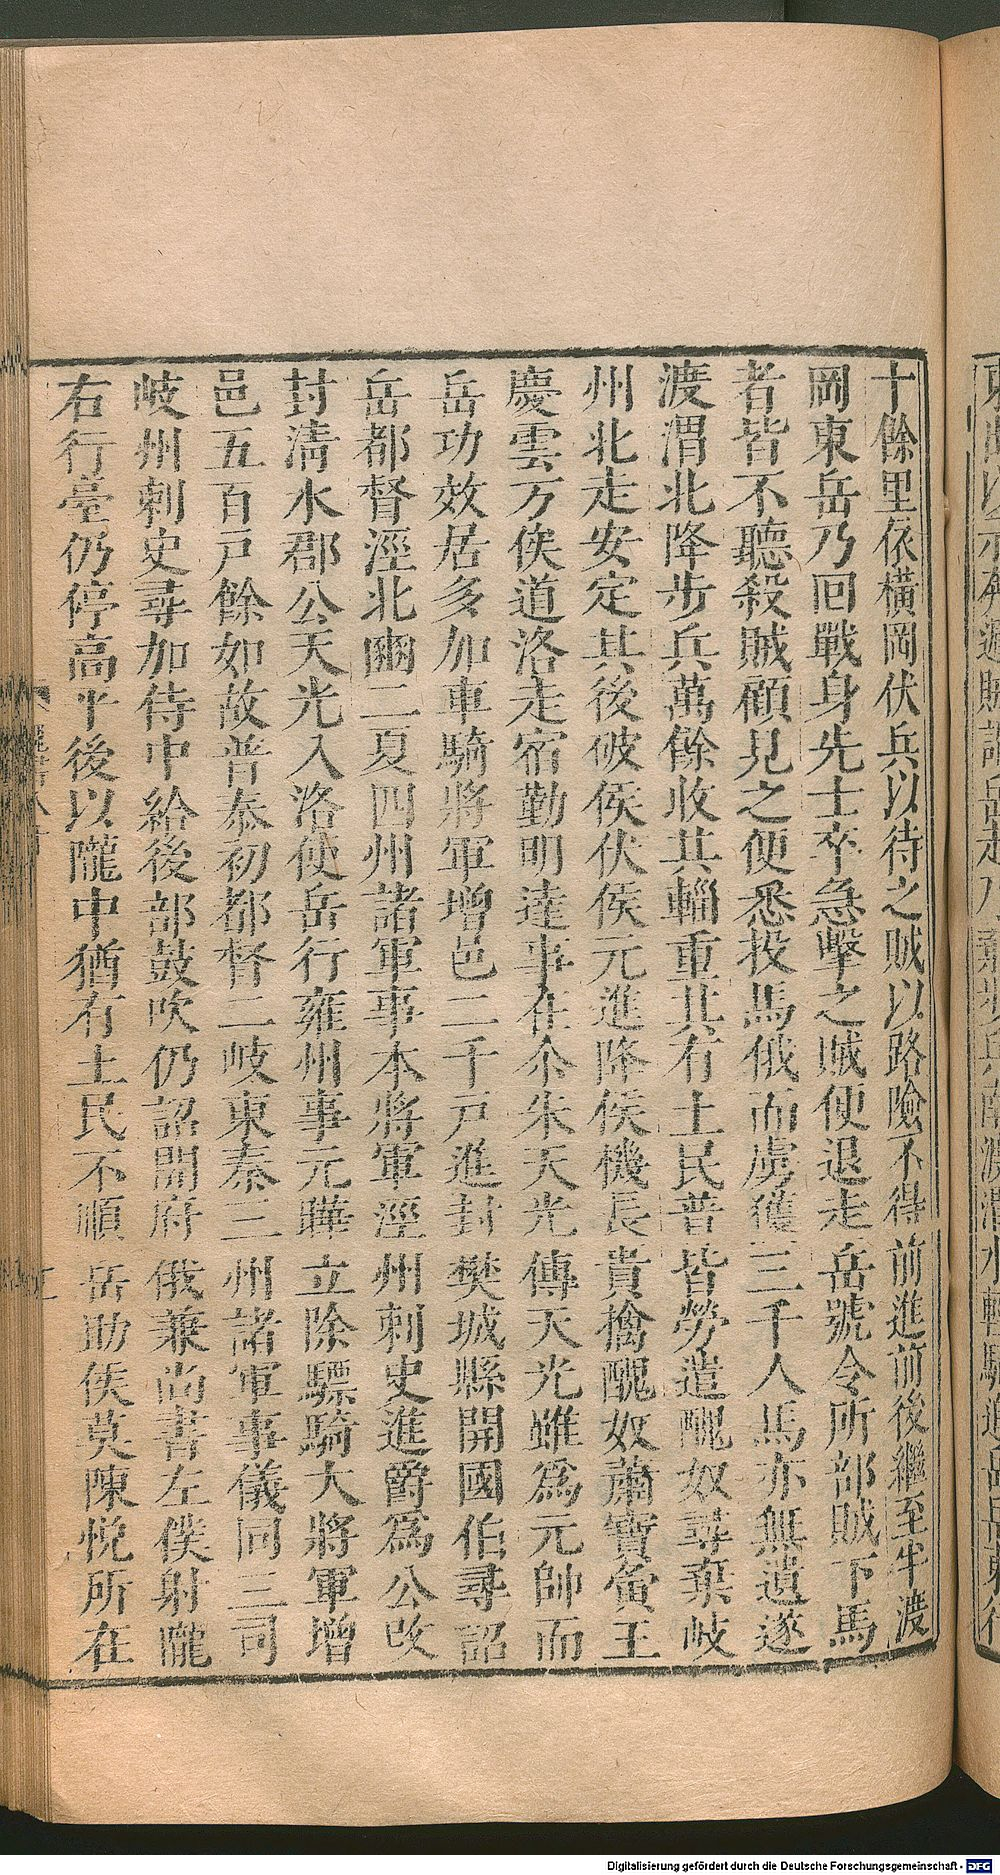 十餘里依橫岡伏兵以待之賊以路險不得前進前後繼至半渡
岡東岳乃回戰身先士卒急擊之賊便退走岳號令所部賊下馬
者皆不聽殺賊顧見之便悉投馬俄而虜獲三千人馬亦無遺遂
渡渭北降步兵萬餘收其輜重其有土民普皆勞遣醜奴尋棄岐
州北走安定其後破侯伏侯元進降侯機長貴擒醜奴蕭寶夤王
慶雲万俟道洛走宿勤明達事在尒朱天光傳天光雖爲元帥而
岳功效居多加車騎將軍增邑二千戸進封樊城縣開國伯尋詔
岳都督涇北豳二夏四州諸軍事本將軍涇州刺史進爵爲公改
封淸水郡公天光入洛使岳行雍州事元曄立除驃騎大將軍增
邑五百戸餘如故普泰初都督二岐東秦三州諸軍事儀同三司
岐州刺史尋加侍中給後部鼓吹仍詔開府俄兼尚書左僕射隴
右行臺仍停高平後以隴中猶有土民不順岳助侯莫陳悅所在
Digitalisierung gefördert durch die Deutsche Forschungsgemeinschaft - DFG